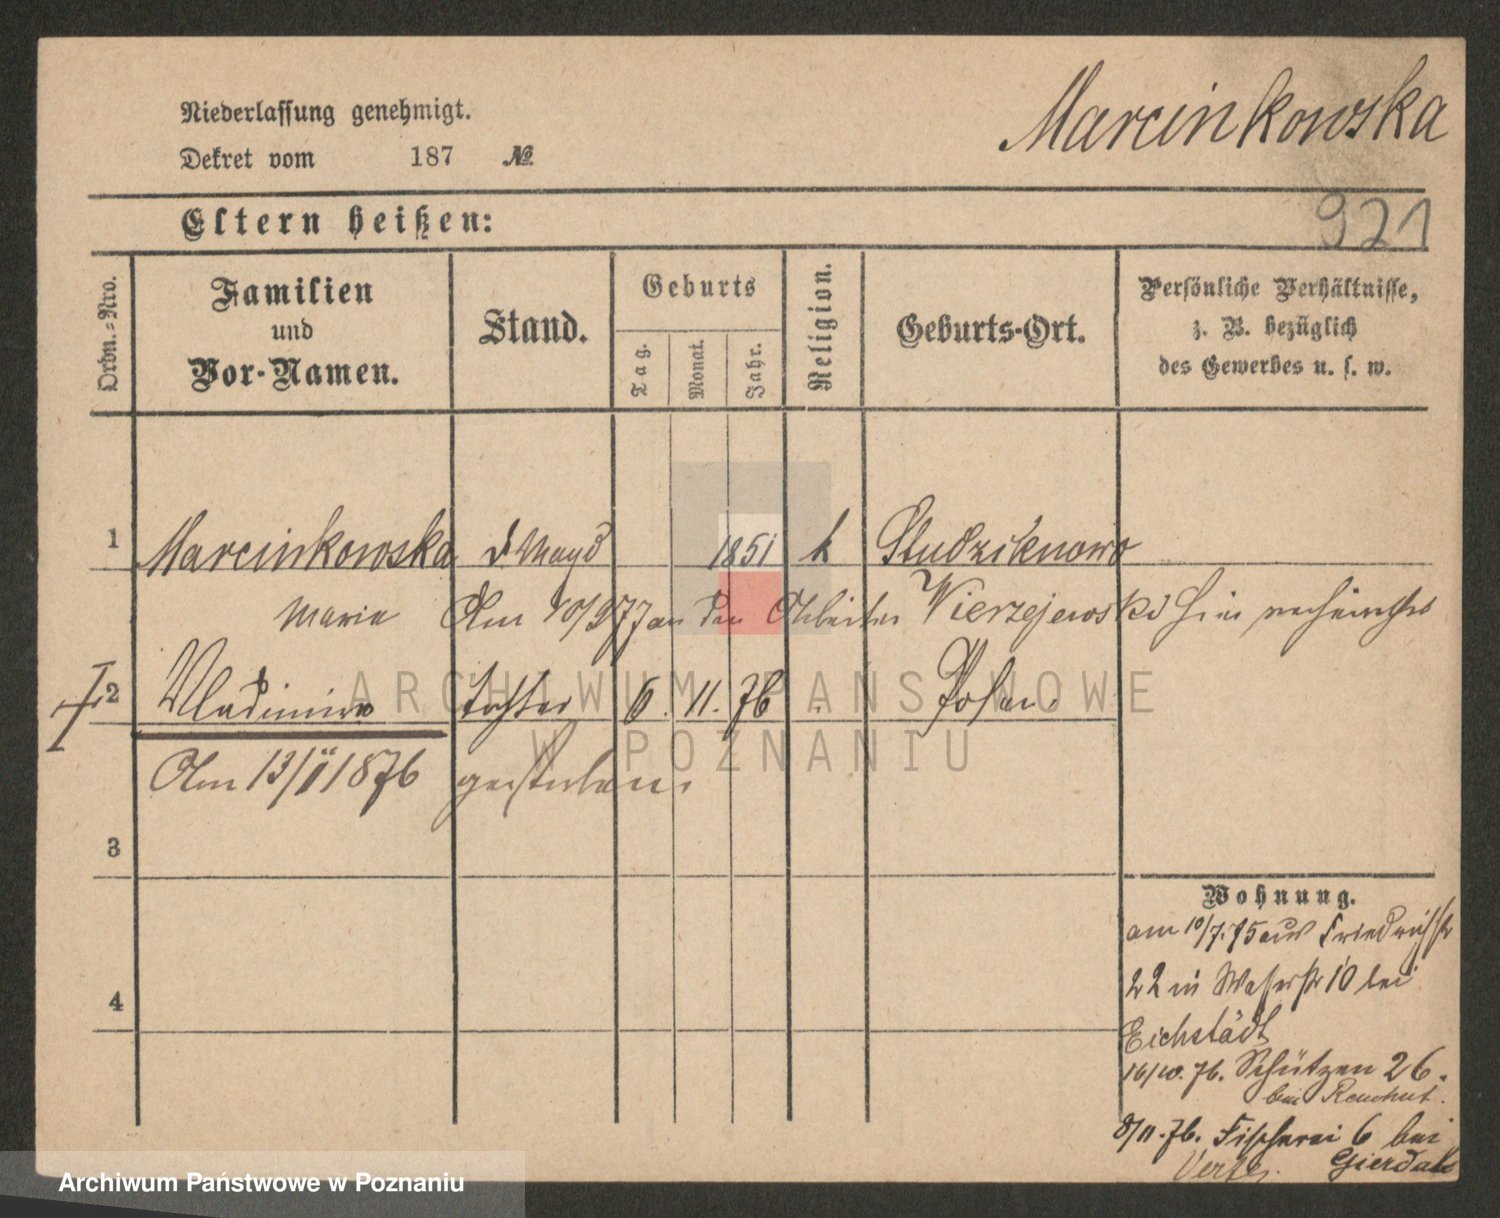 Marcinkowska
Niederlassung genehmigt.
Dekret vom 187 №
921
Eltern heißen:
Ordn.-Nro.
Familien und Vor-Namen.
Stand.
Geburts
Tag.
Monat.
Jahr.
Religion.
Geburts-Ort.
Persönliche Verhältnisse,
z. B. bezüglich
des Gewerbes u. s. w.
1 Marcinkowska d Magd 1851 k Studziknowo
Maria Am 10/9 77 an den Arbeiter Wierzejewski hier
2 Tochter 6. 11. 76 Posen.
Am 13/11 1876 gestorben.
3
4
Wohnung.
am 10/7. 75 aus Friedrichstr
22 in 10 bei
Eichstädt
16/10. 76. Schützen 26.
bei
8/11. 76. Fischerei 6 bei
ARCHIWUM PAŃSTWOWE
W POZNANIU
Archiwum Państwowe w Poznaniu